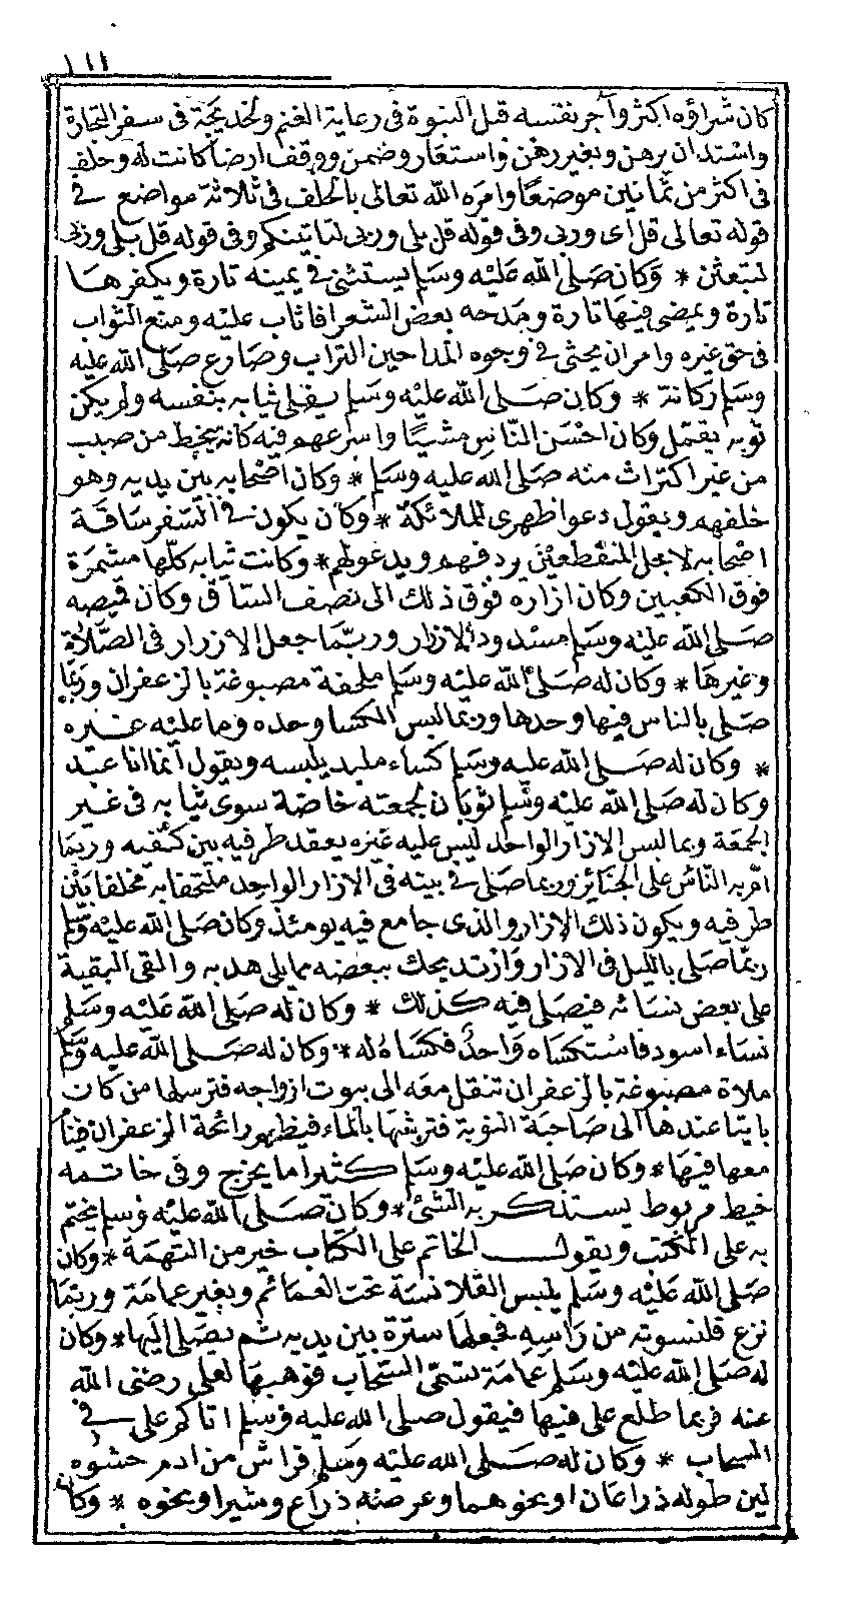 ١١١
كان شراؤه اكثر وآجر نفسه قبل النبوة فى رعاية الغنم ولخديجة فى سفر التجارة
واستدان برهن وبغير رهن واستعار وضمن ووقف ارضا كانت له وحلف
فى اكثر من ثمانين موضعا وامره الله تعالى بالحلف فى ثلاثة مواضع فى
قوله تعالى قل اى وربى وفى قوله قل بلى وربى لتاتينكم وفى قوله قل بلى وربى
لتبعثن * وكان صلى الله عليه وسلم يستثنى فى يمينه تارة ويكفرها
تارة ويمضى فيها تارة ومدحه بعض الشعرا فاثاب عليه ومنع الثواب
فى حق غيره وامر ان يحثى فى وجوه المداحين التراب وصارع صلى الله عليه
وسلم ركانة * وكان صلى الله عليه وسلم يفلى ثيابه بنفسه ولم يكن
ثوبه يقمل وكان احسن الناس مشيا واسرعهم فيه كانه ينحط من صبب
من غير اكتراث منه صلى الله عليه وسلم * وكان اصحابه بين يديه وهو
خلفهم ويقول دعوا ظهرى للملائكة * وكان يكون فى السفر ساقة
اصحابه لاجل المنقطعين يردفهم ويدعولهم * وكانت ثيابه كلها مشمرة
فوق الكعبين وكان ازاره فوق ذلك الى نصف الساق وكان قميصه
صلى الله عليه وسلم مشدود الازرار وربما جعل الازرار فى الصلاة
وغيرها * وكان له صلى الله عليه وسلم ملحفة مصبوغة بالزعفران وربما
صلى بالناس فيها وحدها وربما لبس الكسا وحده وما عليه غيره
* وكان له صلى الله عليه وسلم كساء ملبد يلبسه ويقول انما انا عبد
وكان له صلى الله عليه وسلم ثوبان لجمعته خاصة سوى ثيابه فى غير
الجمعة وبما لبس الازار الواحد ليس عليه غيره يعقد طرفيه بين كتفيه وربما
ام به الناس على الجنائز وربما صلى فى بيته فى الازار الواحد ملتحفا به مخلفا بين
طرفيه ويكون ذلك الازار والذى جامع فيه يومئذ وكان صلى الله عليه وسلم
ربما صلى بالليل فى الازار وارتدى ببعضه مما يلى هدبه والقى البقية
على بعض نسائه فيصلى فيه كذلك * وكان له صلى الله عليه وسلم
اسود فاستكساه واحد فكساه له * وكان له صلى الله عليه وسلم
ملاة مصبوغة بالزعفران تنقل معه الى بيوت ازواجه فترسلها من كان
بايتا عندها الى صاحبة النوبة فترشها بالماء فيظهر رائحة الزعفران فينام
معها فيها * وكان صلى الله عليه وسلم كثيرا ما يخرج وفى خاتمه
خيط مربوط يستذكر به الشئ * وكان صلى الله عليه وسلم يختم
به على الكتب ويقول الخاتم على الكتاب خير من التهمة * وكان
صلى الله عليه وسلم يلبس القلانسة تحت العمائم وبغير عمامة وربما
نزع قلنسوته من راسه فجعلها سترة بين يديه ثم يصلى اليها * وكان
له صلى الله عليه وسلم عمامة تسمى السحاب فوهبها لعلى رضى الله
عنه فربما طلع على فيها فيقول صلى الله عليه وسلم اتاكم على فى
السحاب * وكان له صلى الله عليه وسلم فراش من ادم حشوه
لين طوله ذراعان او نحوهما وعرضه ذراع وشبرا ونحوه * وكان